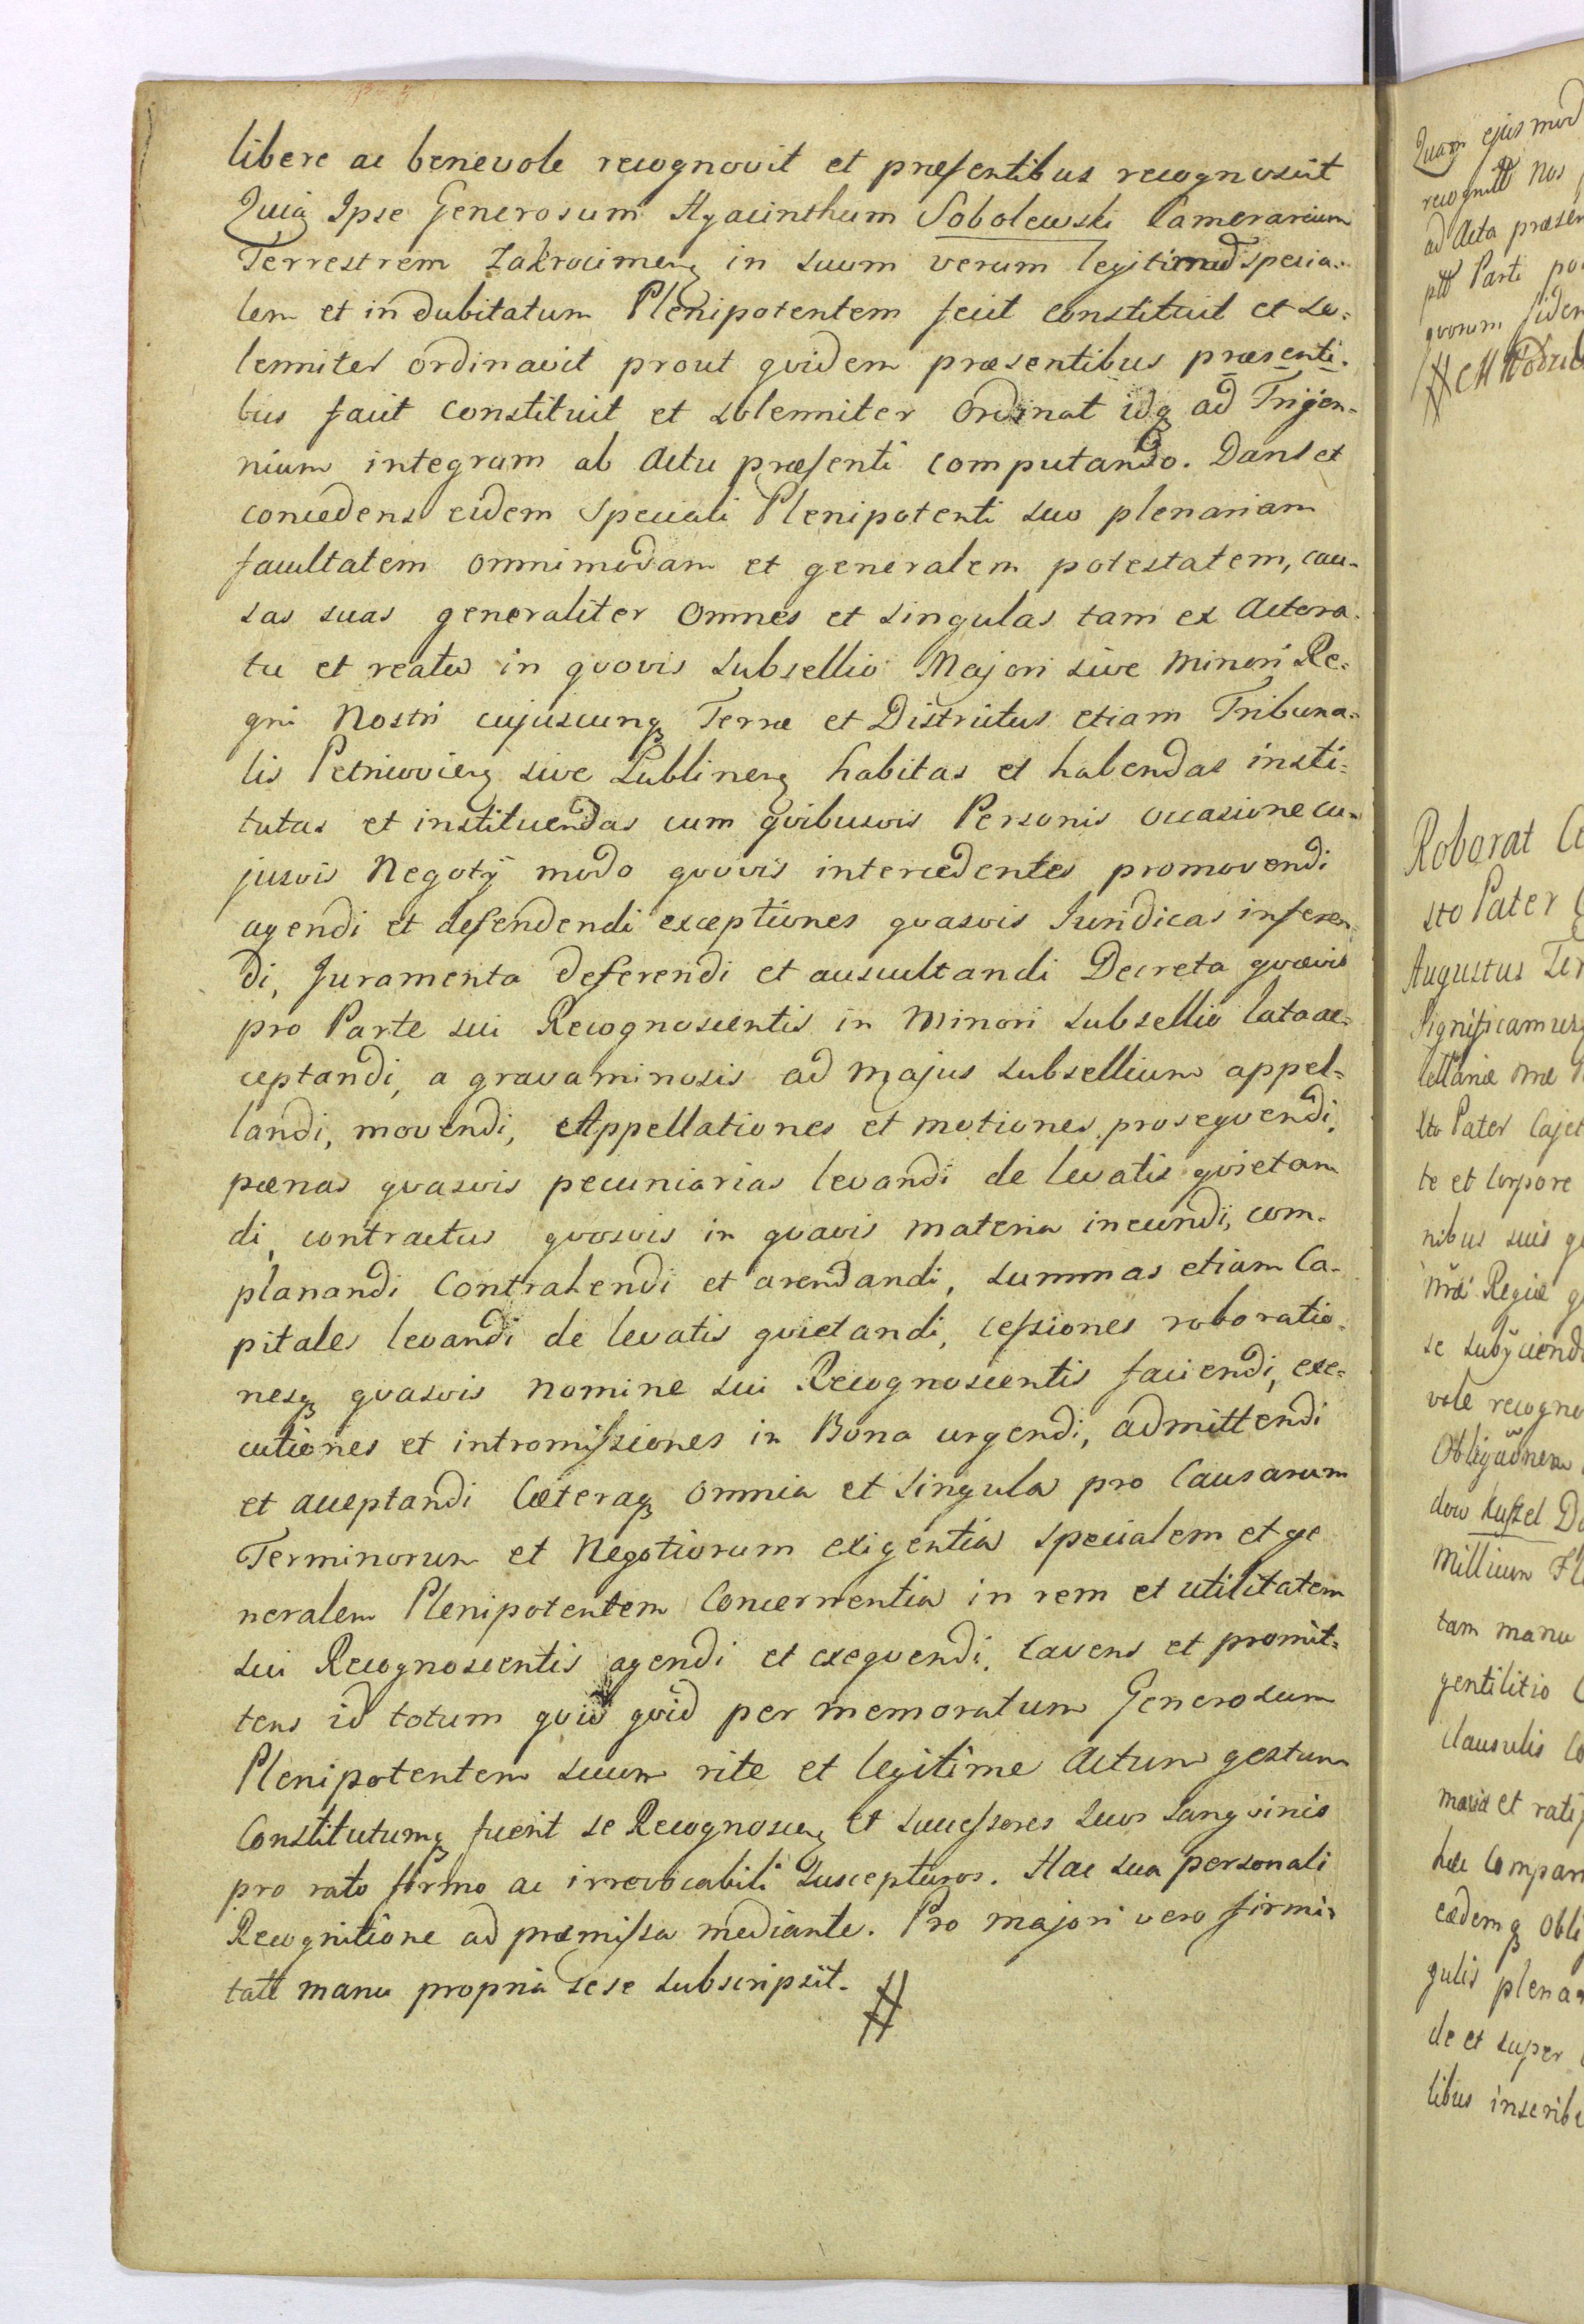 libere ac benevole recognovit et præsentibus recognoscit
Quia Ipse Generosum Hyacinthum Sobolewski Camerarium
Terrestrem Zakrocimenq in suum verum legitimũ specia-
lem et indubitatum Plenipotentem fecit constituit et so=
lenniter ordinavit prout qvidem præsentibus præsenti-
bus facit constituit et solenniter ordinat idq ad Trigen-
nium integrum ab Actu præsenti computando. Dans et
concedens eidem Speciali Plenipotenti suo plenariam
facultatem omnimodam et generalem potestatem, cau-
sas suas generaliter omnes et singulas tam ex Actora-
tu et reatu in qvovis Subsellio Majori sive Minori Re=
gni Nostri cujuscunq Terræ et Districtus etiam Tribuna=
lis Petricovienq sive Lublinenq habitas et habendas insti=
tutas et instituendas cum qvibusvis Personis occasione cu=
jusvis Negotÿ modo qvovis intercedentes promovendi
agendi et defendendi exceptiones qvasvis Juridicas inferen
di, Juramenta deferendi et auscultandi Decreta qvævis
pro Parte sui Recognoscentis in Minori Subsellio lata ac=
ceptandi, a gravaminosis ad Majus Subsellium appel=
landi, movendi, Appellationes et motiones proseqvendi,
pœnas qvasvis pecuniarias levandi de levatis qvietan
di, contractus qvosvis in qvavis materia ineundi, com-
planandi Contrahendi et arendandi, summas etiam Ca-
pitales levandi de levatis qvietandi, cessiones roboratio-
nesq qvasvis nomine sui Recognoscentis faciendi, exe=
cutiones et intromissiones in Bona urgendi, admittendi
et acceptandi Cæteraq omnia et singula pro Causarum
Terminorum et Negotiorum exigentia specialem et ge
neralem Plenipotentem Concernentia in rem et utilitatem
sui Recognoscentis agendi et exeqvendi. Cavens et promit=
tens id totum qvid qvid per memoratum Generosum
Plenipotentem suum rite et legitime Actum gestum
Constitutumq fuerit se Recognoscenq et successores suos sangvinis
pro rato firmo ac irrevocabili suscepturos. Hac sua personali
Recognitione ad præmissa mediante. Pro majori vero firmi-
tate manu propria sese subscripsit.
Quam ejusmod
nos
ad Acta præsen
Parti
qvorum fidem
Roborat
sto Pater
Augustus Ter
Significamusq
Pater Cajet
te et Corpore
nibus suis
Regiæ
se subÿciendo
vole recogno
Millium
tam manu
gentilitio
clausulis
et ratif
hæc Compar
eademq Obli
gulis plena
de et super
libus inscribe